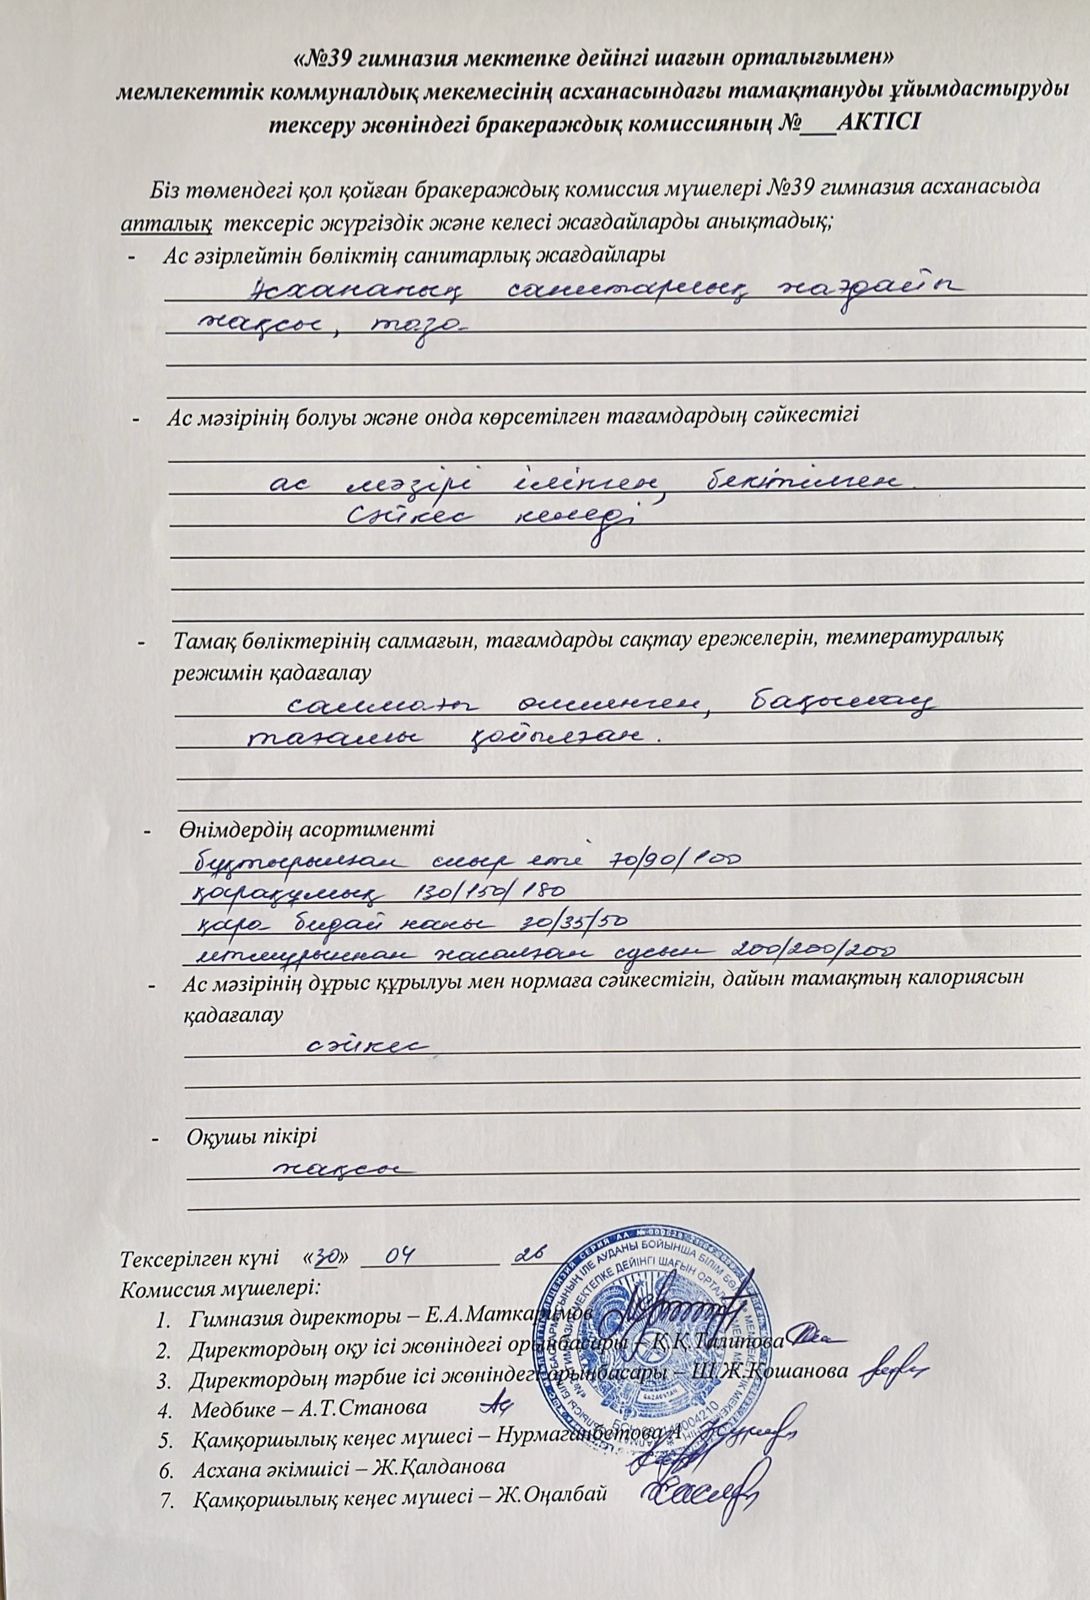 «№39 гимназия мектепке дейінгі шағын орталығымен»
мемлекеттік коммуналдық мекемесінің асханасындағы тамақтануды ұйымдастыруды
тексеру жөніндегі бракераждық комиссияның №___АКТІСІ
Біз төмендегі қол қойған бракераждық комиссия мүшелері №39 гимназия асханасыда
апталық тексеріс жүргіздік және келесі жағдайларды анықтадық;
- Ас әзірлейтін бөліктің санитарлық жағдайлары
Асхананың санитарлық жағдайы
жақсы, таза
- Ас мәзірінің болуы және онда көрсетілген тағамдардың сәйкестігі
ас мәзірі ілінген, бекітілген.
Сәйкес келеді
- Тамақ бөліктерінің салмағын, тағамдарды сақтау ережелерін, температуралық
режимін қадағалау
салмағы өлшенген, бақылау
тағамы қойылған.
- Өнімдердің асортименті
бұқтырылған сиыр еті 70/90/100
қарақұмық 130/150/180
қара бидай наны 30/35/50
итмұрыннан жасалған сусын 200/200/200
- Ас мәзірінің дұрыс құрылуы мен нормаға сәйкестігін, дайын тамақтың калориясын
қадағалау
сәйкес
- Оқушы пікірі
жақсы
Тексерілген күні «30» 04 26
Комиссия мүшелері:
1. Гимназия директоры – Е.А.Маткаримов
2. Директордың оқу ісі жөніндегі орынбасары – Қ.Қ.Талипова
3. Директордың тәрбие ісі жөніндегі орынбасары – Ш.Ж.Қошанова
4. Медбике – А.Т.Станова
5. Қамқоршылық кеңес мүшесі – Нурмаганбетова А
6. Асхана әкімшісі – Ж.Қалданова
7. Қамқоршылық кеңес мүшесі – Ж.Оңалбай